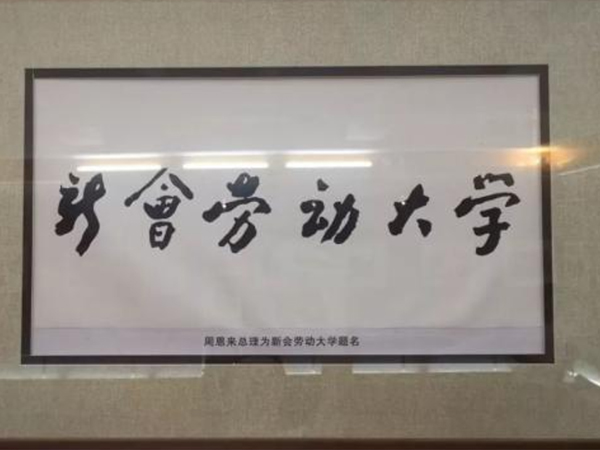 新會劳动大学
周恩来总理为新会劳动大学题名